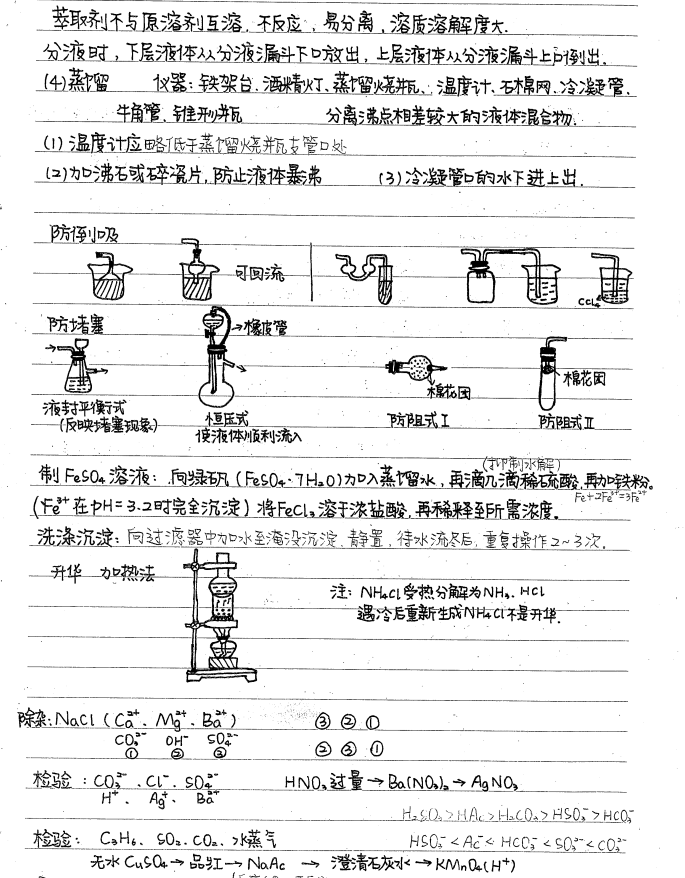 萃取剂不与原溶剂互溶，不反应，易分离，溶质溶解度大.
分液时，下层液体从分液漏斗下口放出，上层液体从分液漏斗上口倒出.
(4)蒸馏 仪器：铁架台、酒精灯、蒸馏烧瓶、温度计、石棉网、冷凝管、
牛角管、锥形瓶 分离沸点相差较大的液体混合物.
(1) 温度计应略低于蒸馏烧瓶支管口处
(2)加沸石或碎瓷片，防止液体暴沸 (3)冷凝管口的水下进上出.
防倒吸
可回流
CCl₄
防堵塞
橡皮管
棉花团
棉花团
液封平衡式
(反映堵塞现象)
恒压式
使液体顺利流入
防阻式Ⅰ
防阻式Ⅱ
(抑制水解)
制FeSO₄溶液：向绿矾(FeSO₄·7H₂O)加入蒸馏水，再滴几滴稀硫酸，再加铁粉。
Fe+2Fe³⁺=3Fe²⁺
(Fe³⁺在pH=3.2时完全沉淀) 将FeCl₃溶于浓盐酸，再稀释至所需浓度。
洗涤沉淀：向过滤器中加水至淹没沉淀，静置，待水流尽后，重复操作2~3次.
升华 加热法
注：NH₄Cl受热分解为NH₃、HCl
遇冷后重新生成NH₄Cl不是升华.
除杂：NaCl (Ca²⁺、Mg²⁺、Ba²⁺) ③ ② ①
CO₃²⁻ OH⁻ SO₄²⁻
① ② ③ ② ③ ①
检验：CO₃²⁻、Cl⁻、SO₄²⁻ HNO₃过量→Ba(NO₃)₂→AgNO₃
H⁺、Ag⁺、Ba²⁺
H₂SO₃>HAc>H₂CO₃>HSO₃⁻>HCO₃⁻
检验：C₂H₆、SO₂、CO₂、水蒸气 HSO₃⁻<Ac⁻<HCO₃⁻<SO₃²⁻<CO₃²⁻
无水CuSO₄→品红→NaAc→澄清石灰水→KMnO₄(H⁺)